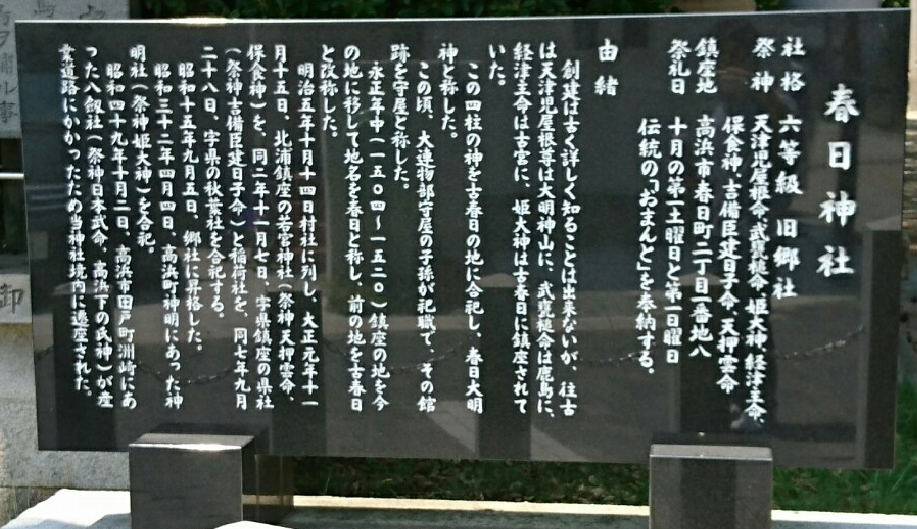 春日神社
社格 六等級 旧郷社
祭神 天津児屋根命、武甕槌命、姫大神、経津主命、
保食神、吉備臣建日子命、天押雲命
鎮座地 高浜市春日町二丁目一番地八
祭礼日 十月の第一土曜日と第一日曜日
伝統の「おまんと」を奉納する。
由緒
創建は古く詳しく知ることは出来ないが、往古
は天津児屋根尊は大明神山に、武甕槌命は鹿島に、
経津主命は古宮に、姫大神は古春日に鎮座されて
いた。
この四柱の神を古春日の地に合祀し、春日大明
神と称した。
この頃、大連物部守屋の子孫が祀職で、その館
跡を守屋と称した。
永正年中(一五〇四〜一五二〇)鎮座の地を今
の地に移して地名を春日と称し、前の地を古春日
と改称した。
明治五年十月十四日村社に列し、大正元年十一
月十五日、北浦鎮座の若宮神社(祭神天押雲命、
保食神)を、同二年十一月七日、字県鎮座の県社
(祭神吉備臣建日子命)と稲荷社を、同七年九月
二十八日、字県の秋葉社を合祀する。
昭和十五年九月五日、郷社に昇格した。
昭和三十二年四月四日、高浜町神明にあった神
明社(祭神姫大神)を合祀。
昭和四十九年十月二日、高浜市田戸町洲崎にあ
った八剱社(祭神日本武命、高浜下の氏神)が産
業道路にかかったため当神社境内に遷座された。
御